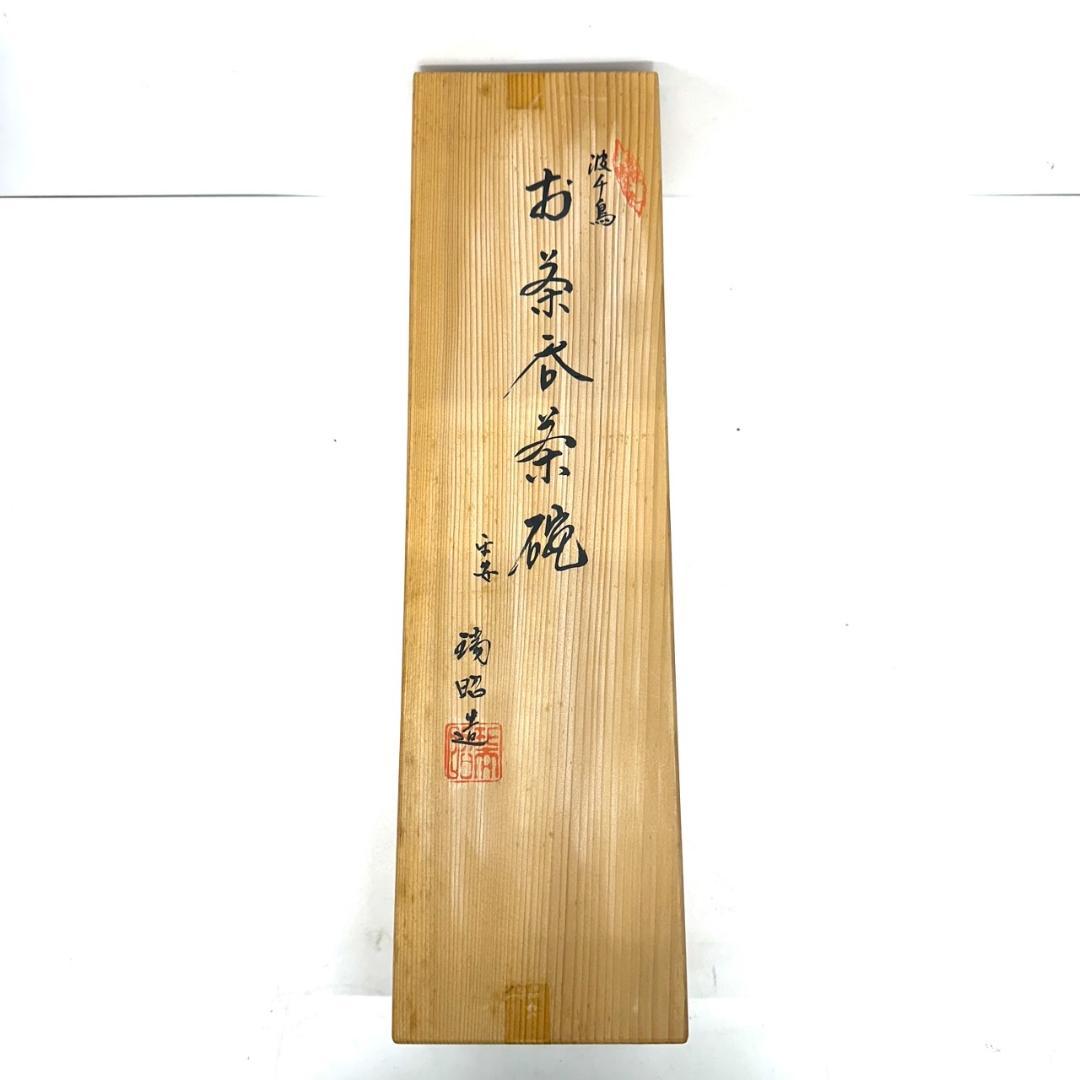 波千鳥
お茶呑茶碗
平安
瑞昭造